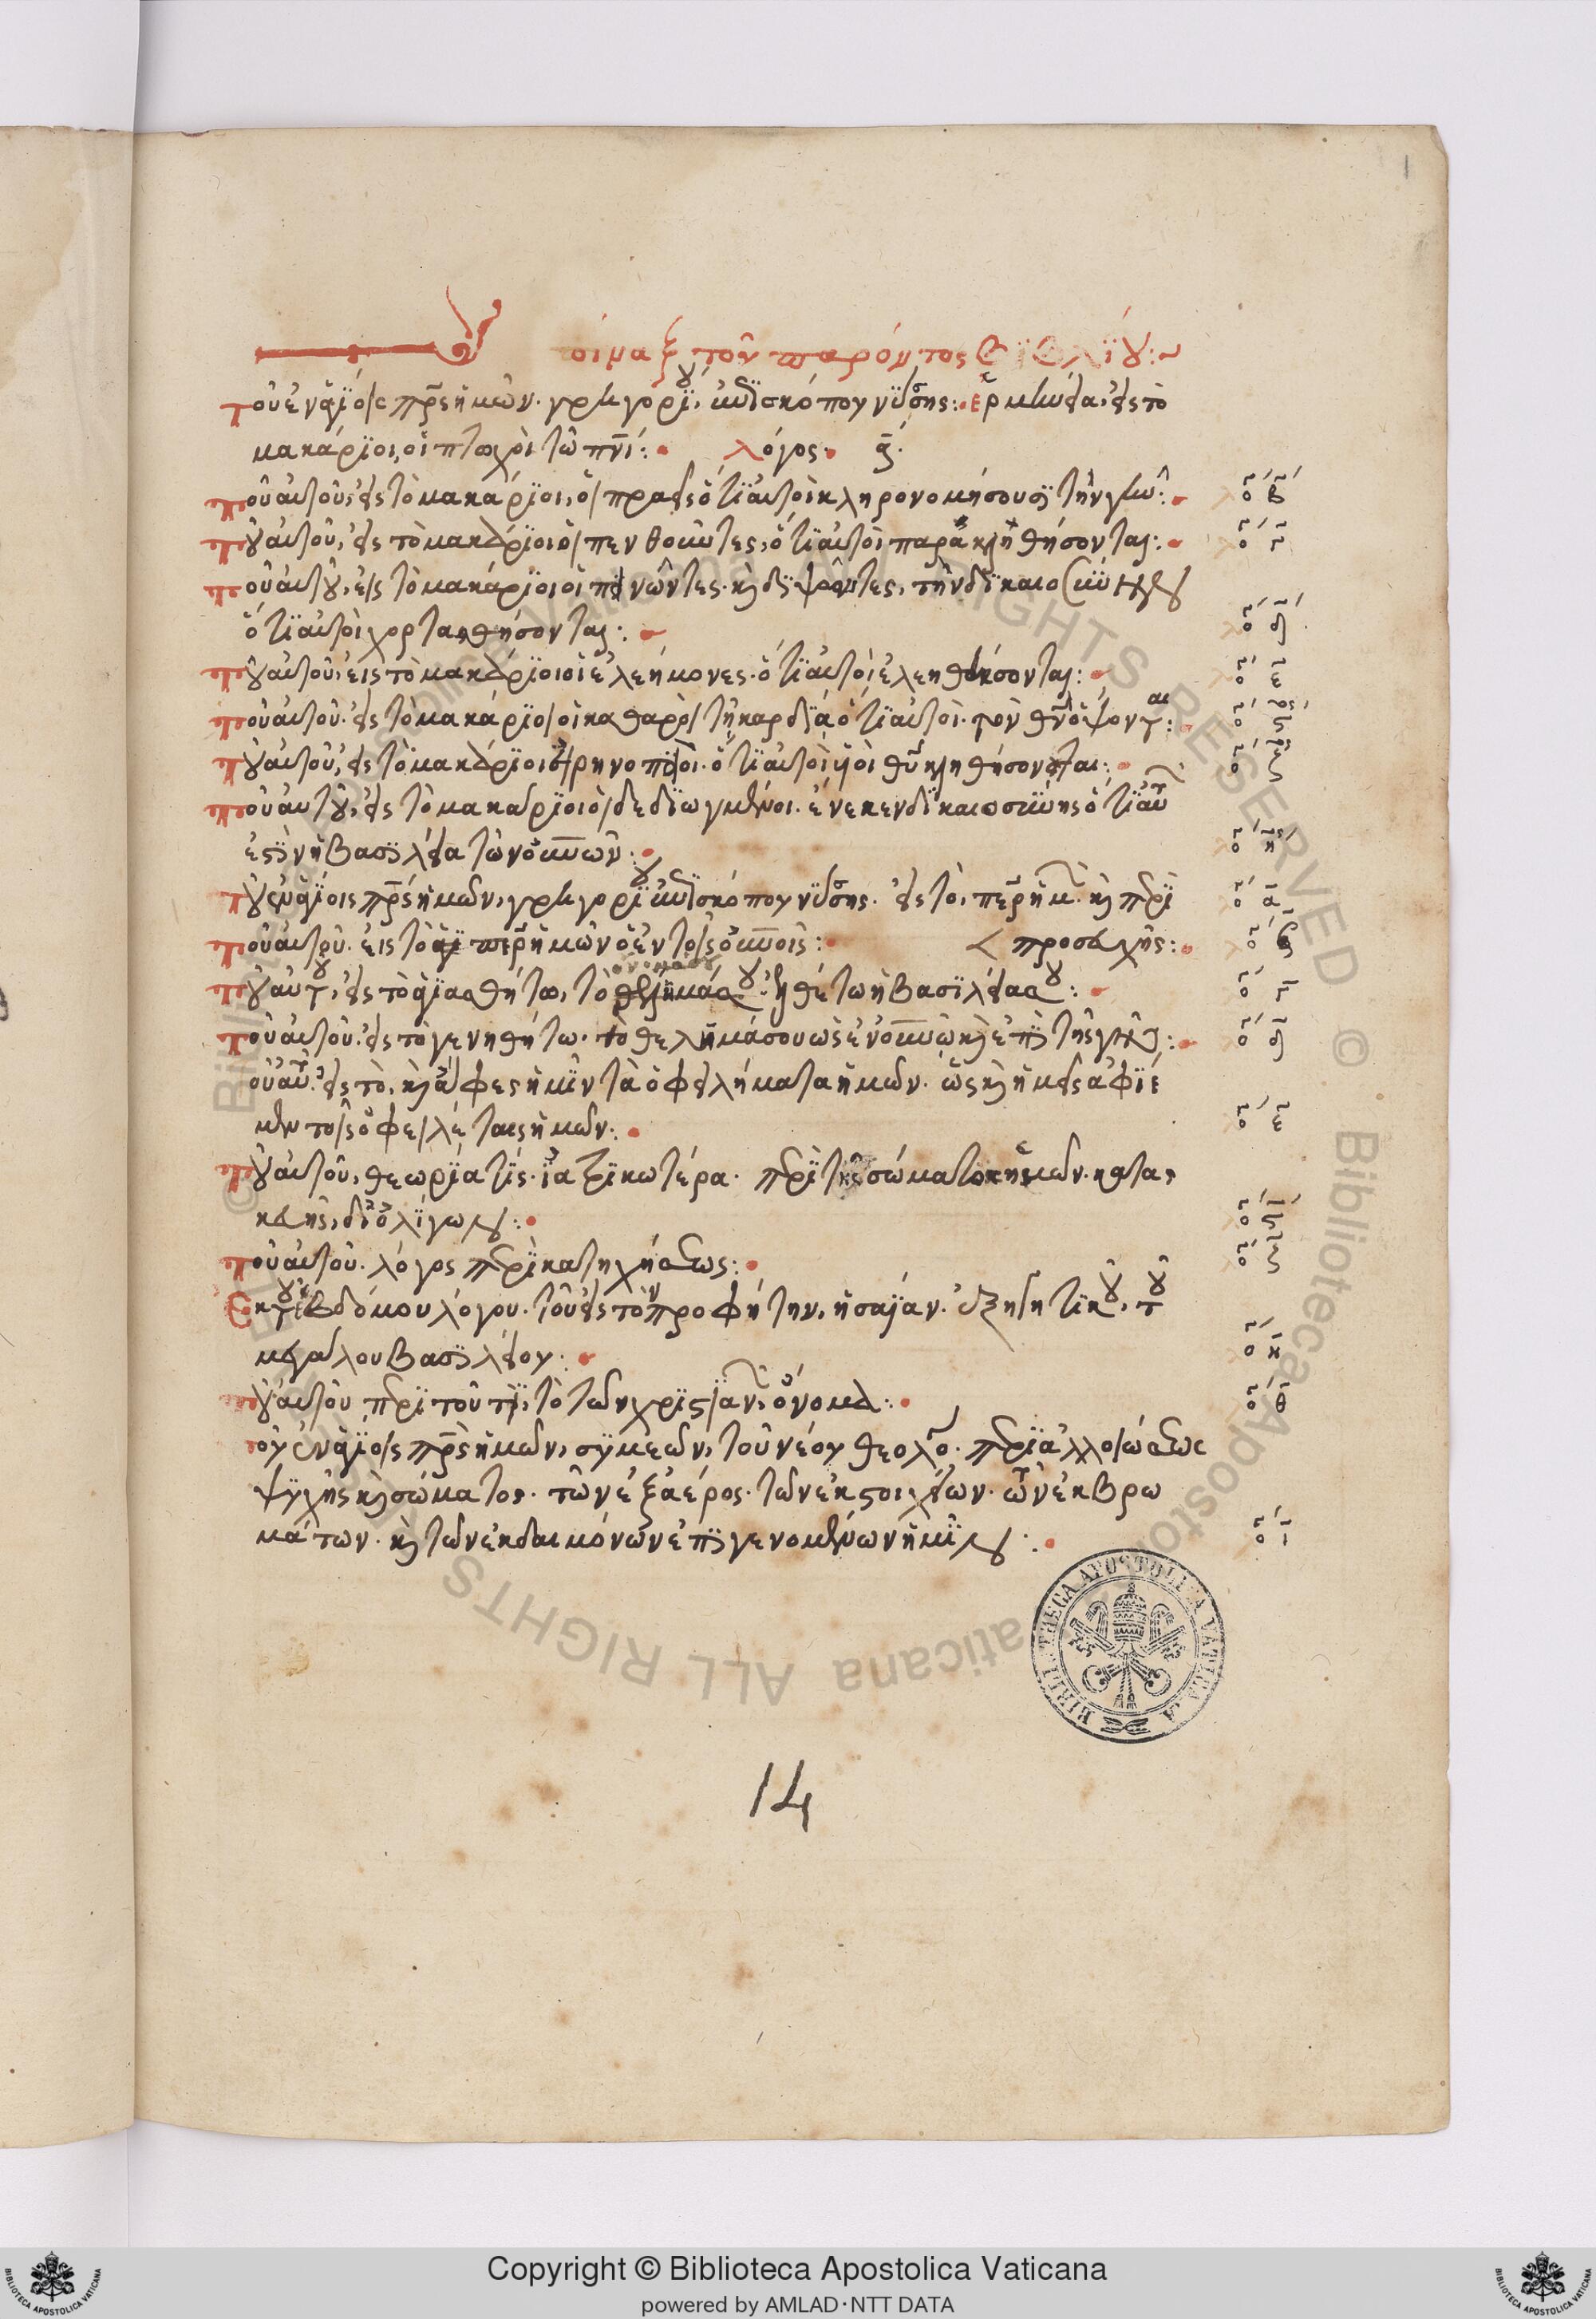 1
πίναξ τοῦ παρόντος βϊβλΐου:~
τοῦ ἐν ἁγΐοις πρς ἡμῶν. γρηγορΐου, ἐπϊσκόπου νΰσης: ἑρμηνεία, εἰς τὸ
μακάρϊοι, οἱ πτωχοὶ τῶ πνι: λόγος α
τοῦ αὐτοῦ, εἰς τὸ μακάρϊοι, οἱ πραεῖς ὅτϊ αὐτοὶ κληρονομήσουσϊ τὴν γῆν: λό β
τοῦ αὐτοῦ, εἰς τὸ μακάρϊοι οἱ πενθοῦντες, ὅτϊ αὐτοὶ παρακληθήσονται: λό γ
τοῦ αὐτοῦ, εἰς τὸ μακάρϊοι οἱ πϊνῶντες. κὶ δϊψῶντες, τὴν δϊκαιοσύνην
ὅτϊ αὐτοὶ χορτασθήσονται: λό δ
τοῦ αὐτοῦ, εἰς τὸ μακάρϊοι οἱ ἐλεήμονες. ὅτϊ αὐτοὶ ἐλεηθήσονται: λό ε
τοῦ αὐτοῦ. εἰς τὸ μακάρϊοι οἱ καθαροὶ τῆ καρδΐα ὅτϊ αὐτοὶ. τὸν θν ὄψονται: λό ϛ
τοῦ αὐτοῦ, εἰς τὸ μακάρϊοι οἱ εἰρηνοποϊοὶ. ὅτϊ αὐτοὶ υἱοὶ θυ κληθήσονται: λό ζ
τοῦ αὐτοῦ, εἰς τὸ μακάρϊοι οἱ δεδϊωγμένοι. ἕνεκεν δϊκαιοσύνης ὅτϊ αὐτῶν
ἐστϊν ἡ βασϊλεία τῶν οὐνῶν: λό η
τοῦ ἐν ἁγΐοις πρς ἡμῶν, γρηγορΐου ἐπϊσκόπου νΰσης. εἰς τὸ, περ ἡμῶν. κὶ περὶ λό α
τοῦ αὐτοῦ. εἰς τὸ περ ἡμῶν ὁ ἐν τοῖς οὐνοῖς: προσευχῆς: λό β
τοῦ αὐτοῦ, εἰς τὸ ἁγϊασθήτω, τὸ θέλημά σου. ἐλθέτω ἡ βασϊλεία σου: λό γ
τοῦ αὐτοῦ. εἰς τὸ γενηθήτω. τὸ θέλημά σου ὡς ἐν οὐνῶ κὶ ἐπϊ τῆς γῆς: λό δ
τοῦ αὐτοῦ. εἰς τὸ, κὶ ἄφες ἡμῖν τὰ ὀφειλήματα ἡμῶν. ὡς κὶ ἡμεῖς ἀφΐε
μεν τοῖς ὀφειλέταις ἡμῶν: λό ε
τοῦ αὐτοῦ, θεωρΐα τϊς. ἰατρϊκωτέρα. περὶ τῆς σώματος ἡμῶν. κατα,
κευῆς, δι' ὀλΐγων: λό ϛ
τοῦ αὐτοῦ. λόγος περὶ κατηχήσεως: λό ζ
Ἐκ τοῦ ἑβδόμου λόγου. τοῦ εἰς τὸν προφήτην, ἡσαΐαν. ἐξηγητϊκοῦ, τοῦ
μεγάλου βασϊλείου: λό η
τοῦ αὐτοῦ περὶ τοῦ τΐ, τὸ τῶν χρϊστϊανῶν, ὄνομα: λό θ
τοῦ ἐν ἁγΐοις πρς ἡμῶν, συμεὼν, τοῦ νέου θεολόγου. περὶ ἀλλοιώσεως
ψυχῆς κὶ σώματος. τῶν ἐξ ἀέρος. τῶν ἐκ στοιχείων. τῶν ἐκ βρω
μάτων. κὶ τῶν ἐκ δαιμόνων ἐπϊγενομένων ἡμῖν: λό ι
BIBLIOTHECA APOSTOLICA VATICANA
14
Copyright © Biblioteca Apostolica Vaticana
powered by AMLAD·NTT DATA